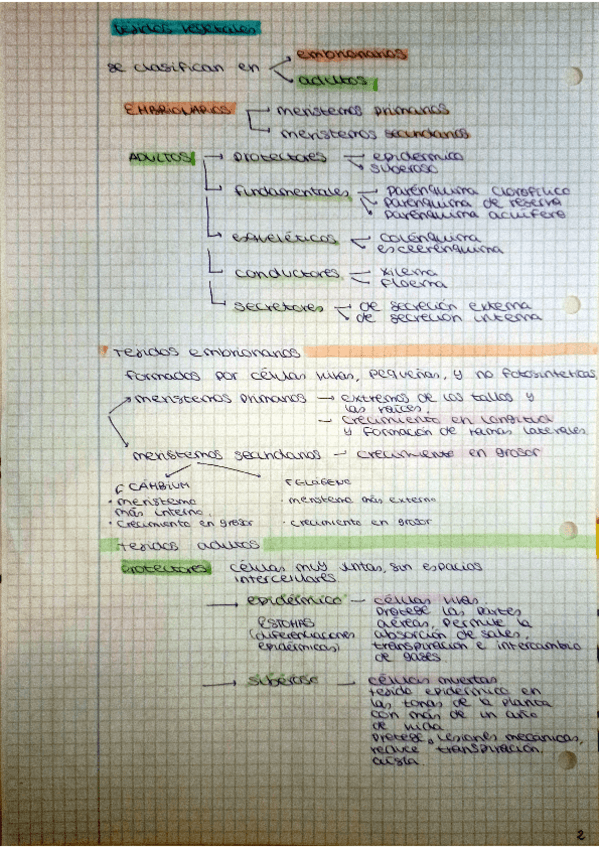 tejidos vegetales
se clasifican en
embrionarios
adultos
EMBRIONARIOS
meristemos primarios
meristemos secundarios
ADULTOS
protectores
epidérmico
suberoso
fundamentales
parénquima clorofílico
parénquima de reserva
parénquima acuífero
esqueléticos
colénquima
esclerénquima
conductores
xilema
floema
secretores
de secreción externa
de secreción interna
tejidos embrionarios
formados por células vivas, pequeñas, y no fotosintéticas
meristemos primarios → extremos de los tallos y
las raíces.
- crecimiento en longitud
y formación de ramas laterales
meristemos secundarios - crecimiento en grosor
CÁMBIUM
· meristemo
más interno.
· crecimiento en grosor
FELÓGENO
· meristemo más externo
· crecimiento en grosor
tejidos adultos
protectores células muy juntas, sin espacios
intercelulares
→ epidérmico - células vivas.
protege las partes
aéreas, permite la
absorción de sales,
transpiración e intercambio
de gases
ESTOMAS
(diferenciaciones
epidérmicas)
→ subérose - células muertas
tejido epidérmico en
las zonas de la planta
con más de un año
de vida
protege, lesiones mecánicas,
reduce transpiración
aísla.
2